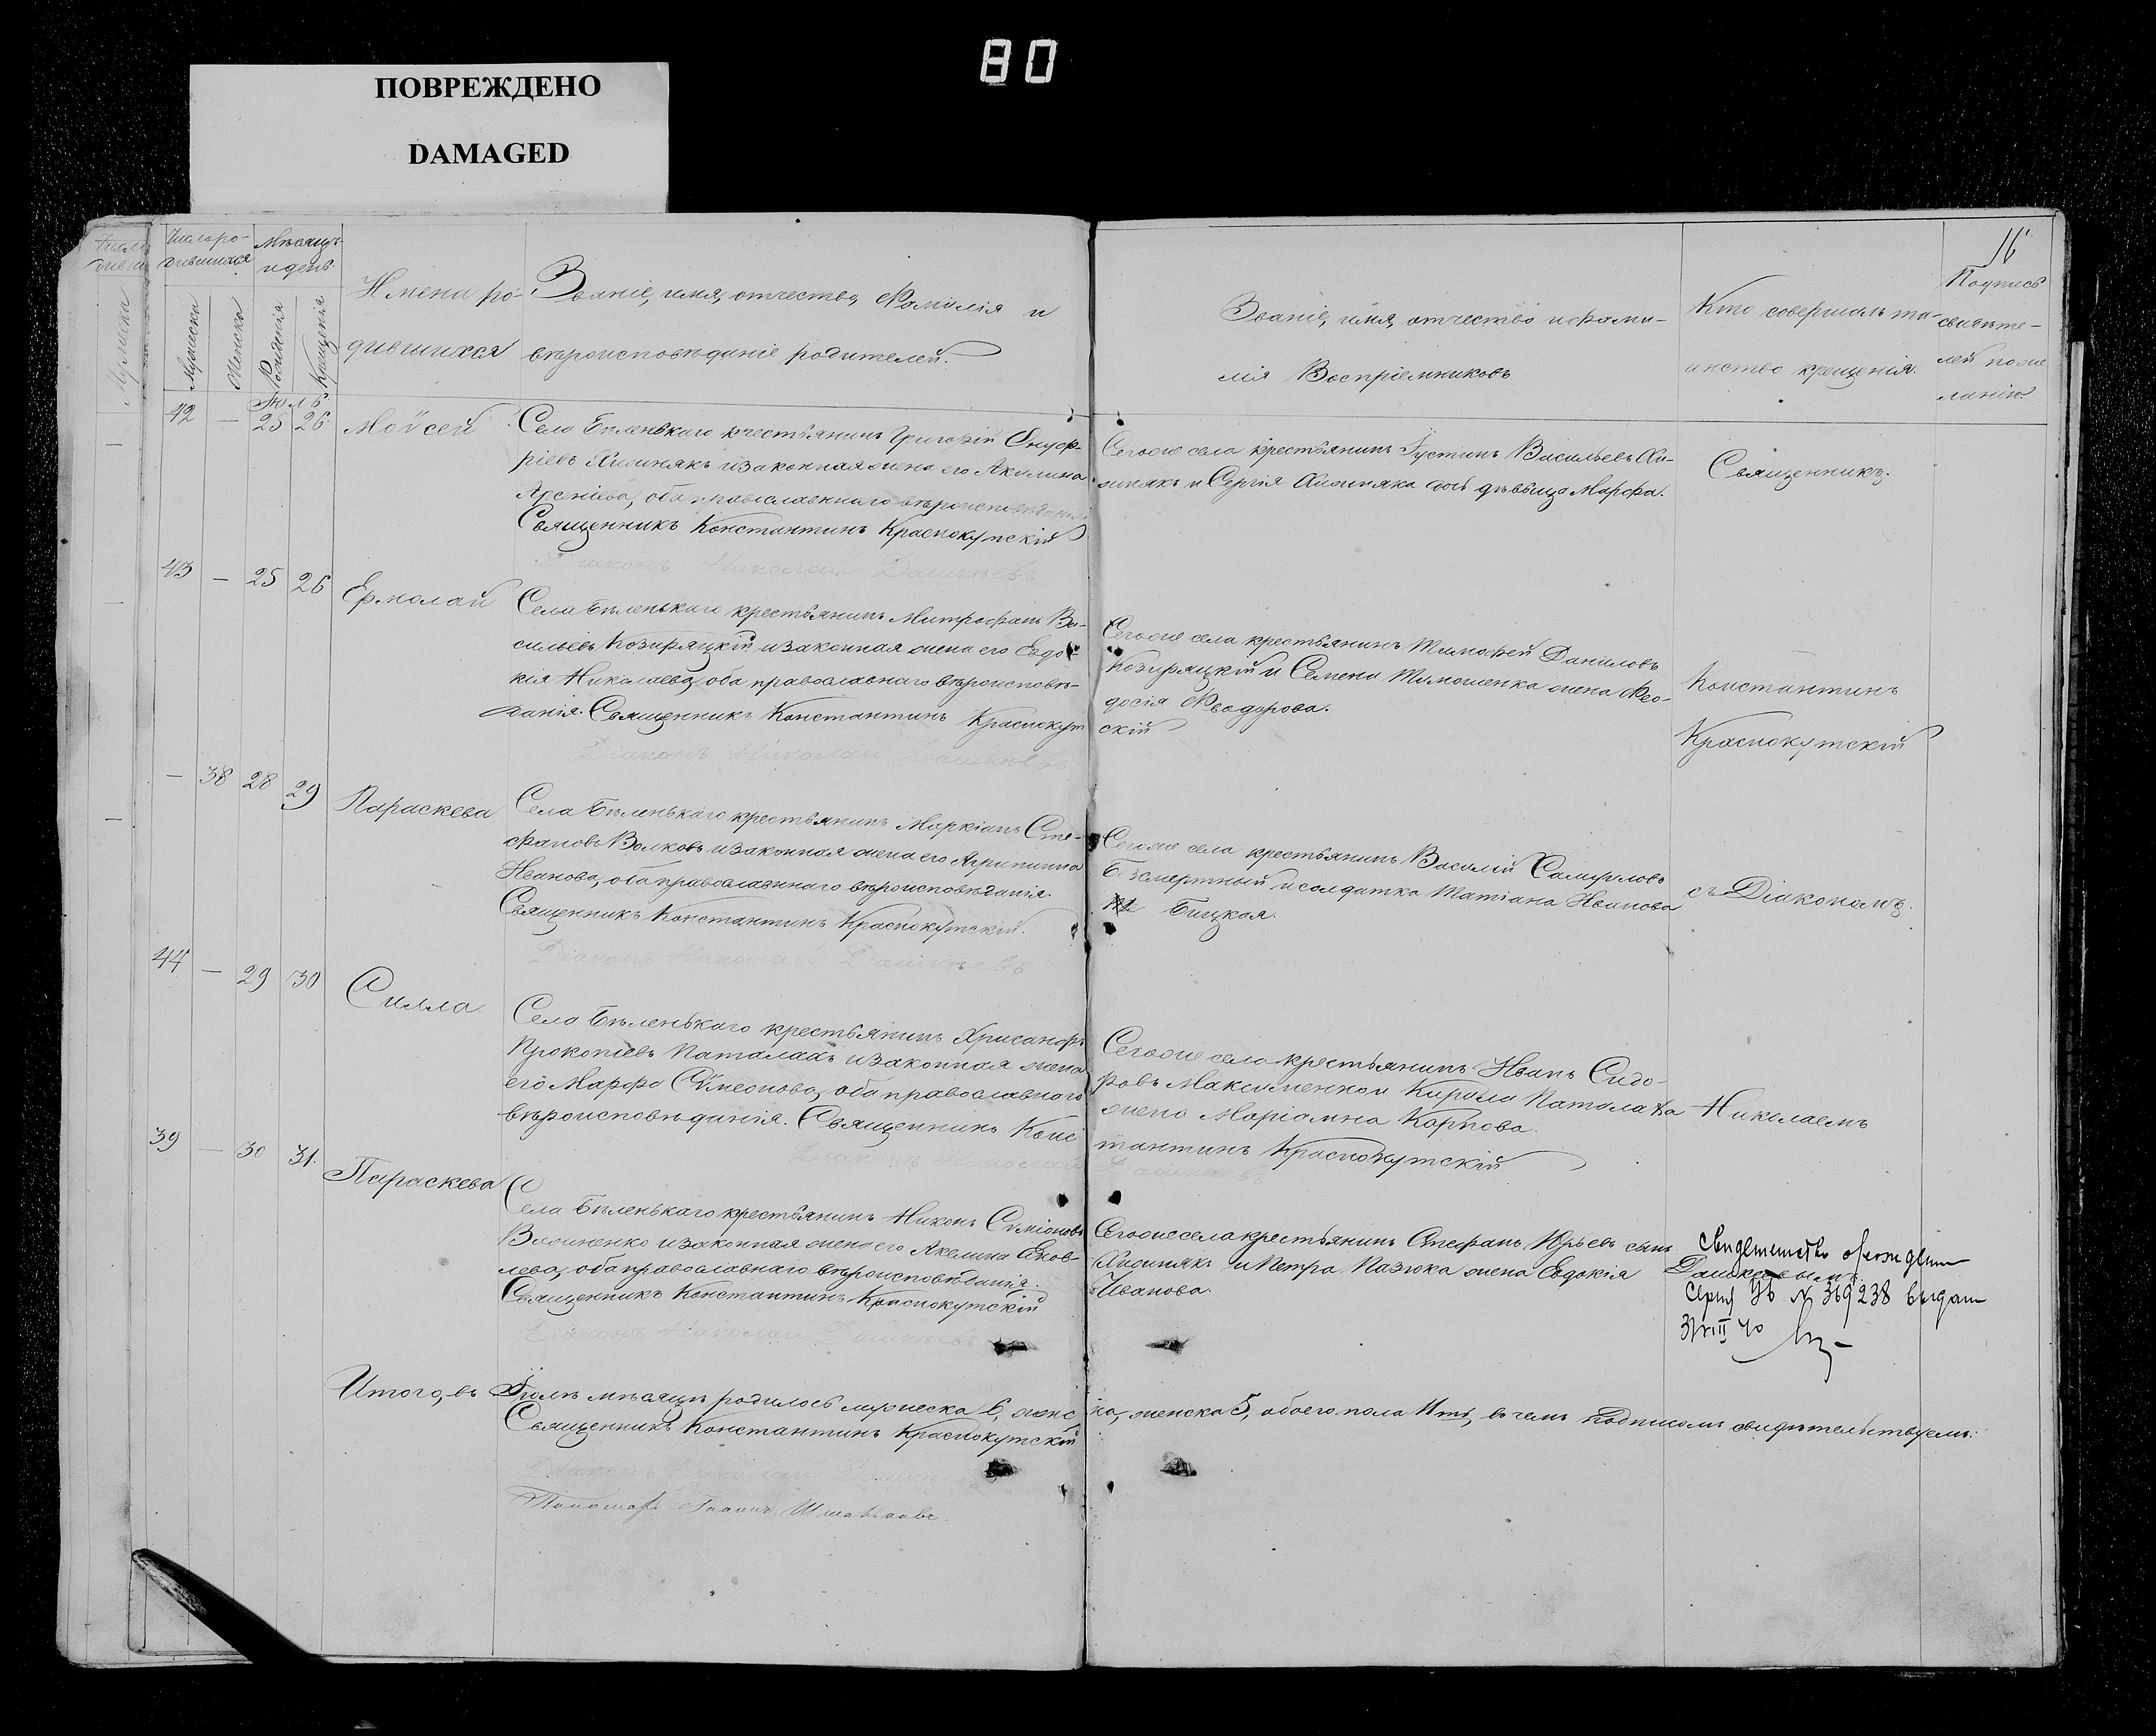 80
ПОВРЕЖДЕНО
DAMAGED
16
Число ро-
дившихся
Мѣсяцъ
и день
Мужеска
Женска
Рожденія
Крещенія
Имена ро-
дившихся
Званіе, имя, отчество, Фамилія и
вѣроисповѣданіе родителей.
Званіе, имя, отчество и фами-
лія Воспріемниковъ
Кто совершалъ та-
инство крещенія.
Подпись
свидѣте-
лей по же
ланію.
Іюль
42 — 25 26 Мойсей
Села Бѣленькаго крестьянинъ Григорій Онуф-
ріевъ Хижнякъ и законная жена его Акилина
Арсеніева, оба православнаго вѣроисповѣданія
Священникъ Константинъ Краснокутскій
Діаконъ Николай Дашкѣевъ
Сегоже села крестьянинъ Іустинъ Васильевъ Хи-
жнякъ и Сергія Хижняка дочь дѣвица Марфа.
Священникъ.
43 — 25 26 Ермолай
Села Бѣленькаго крестьянинъ Митрофанъ Ва-
сильевъ Козиряцкій и законная жена его Евдо-
кія Николаева, оба православнаго вѣроисповѣ-
данія. Священникъ Константинъ Краснокут
скій
Діаконъ Николай Дашкѣевъ
Сегоже села крестьянинъ Тимофей Даниловъ
Козиряцкій и Семена Тимошенка жена Фео-
досія Феодорова.
Константинъ
Краснокутскій
— 38 28 29 Параскева
Села Бѣленькаго крестьянинъ Маркіанъ Сте-
фановъ Волковъ и законная жена его Агрипина
Иванова, оба православнаго вѣроисповѣданія.
Священникъ Константинъ Краснокутскій.
Діаконъ Николай Дашкѣевъ
Сегоже села крестьянинъ Василій Самуиловъ
Безсмертный и солдатка Татіана Иванова
Бицкая.
съ Діакономъ.
44 — 29 30 Силла
Села Бѣленькаго крестьянинъ Хрисанфъ
Прокопіевъ Паталахъ и законная жена
его Марфа Симеонова, оба православнаго
вѣроисповѣданія. Священникъ Конс
тантинъ Краснокутскій
Діаконъ Николай
Сегоже села крестьянинъ Иванъ Сидо-
ровъ Максименко и Кирила Паталаха
жена Маріамна Карпова.
Николаемъ
39 — 30 31. Параскева
Села Бѣленькаго крестьянинъ Никонъ Симіоновъ
и законная жена его Акелина Яков-
лева, оба православнаго вѣроисповѣданія.
Священникъ Константинъ Краснокутскій
Діаконъ Николай Дашкѣевъ
Сегоже села крестьянинъ Стефанъ Юрьевъ сынъ
Хижнякъ и Петра Пазюка жена Евдокія
Иванова.
Дашкевымъ
№ 369238
Итого, въ Іюлѣ мѣсяцѣ родилось мужеска 6, женс
ка, женска 5, обоего пола 11ть, въ чемъ подписомъ свидѣтельствуемъ:
Священникъ Константинъ Краснокутскій
Пономарь Іоаннъ